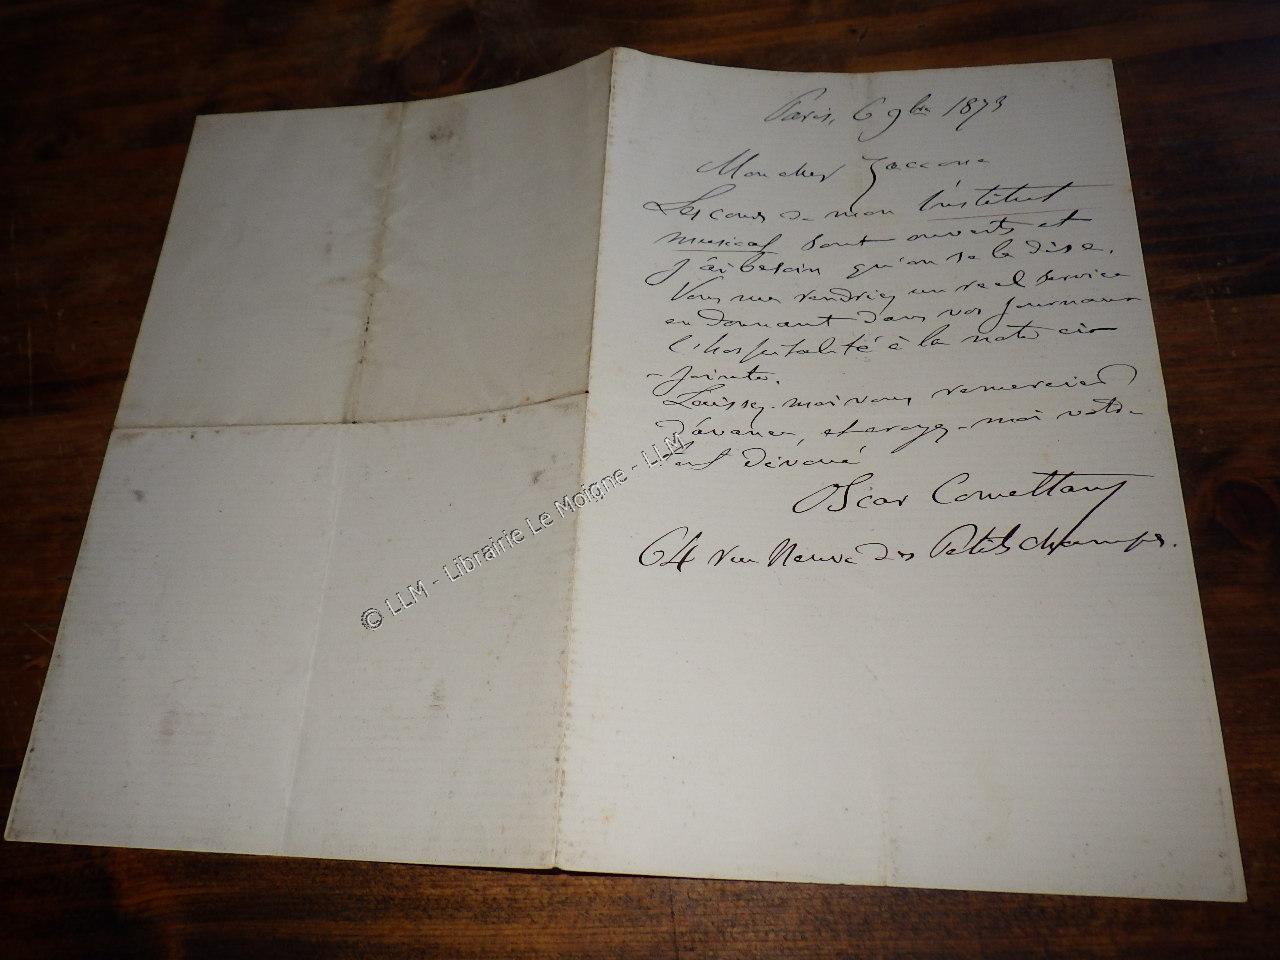 Paris, 6 9bre 1873
Mon cher Zaccone
Les cours de mon Institut
musical sont ouverts et
j'ai besoin qu'on se le dise.
Vous me rendriez un réel service
en donnant dans vos journaux
l'hospitalité à la note ci-
-jointe.
Laissez-moi vous remercier
d'avance, et croyez-moi votre
tout dévoué
Oscar Comettant
64 rue Neuve des Petits champs.
© LLM - Librairie Le Moigne - LLM